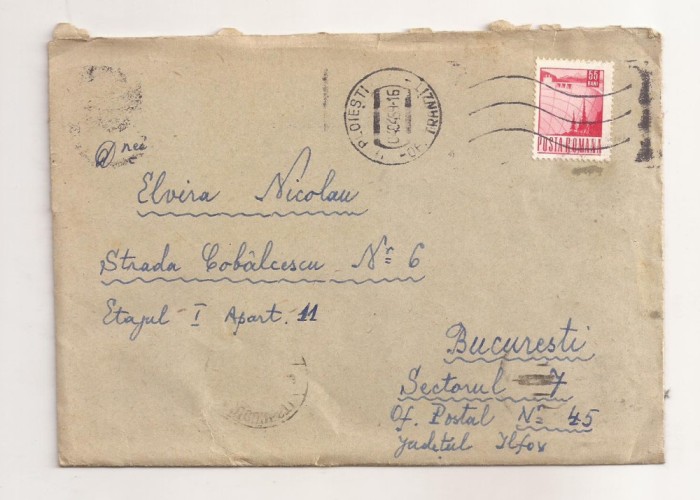 PLOIEȘTI
55
BANI
POSTA ROMANA
Dnei
Elvira Nicolau
Strada Cobâlcescu Nr 6
Etajul I Apart. 11
București
Sectorul 7
Of. Postal Nr 45
Județul Ilfov